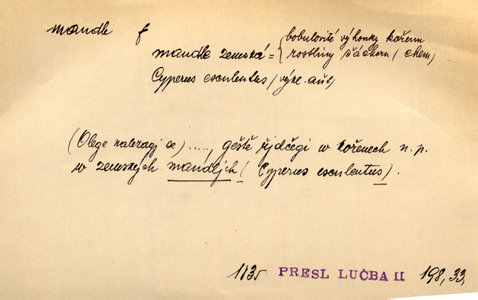 mandle f
mandle zemská = { bobulovité výhonky kořenu
rostliny šáchoru / chem /
Cyperus esculentus / výkl. aut /
(Olege nalezagj se) ....., geště řjdčegi w kořenech n. p.
w zemských mandljch ( Cyperus esculentus ).
1835 PRESL LUČBA II 198, 33,